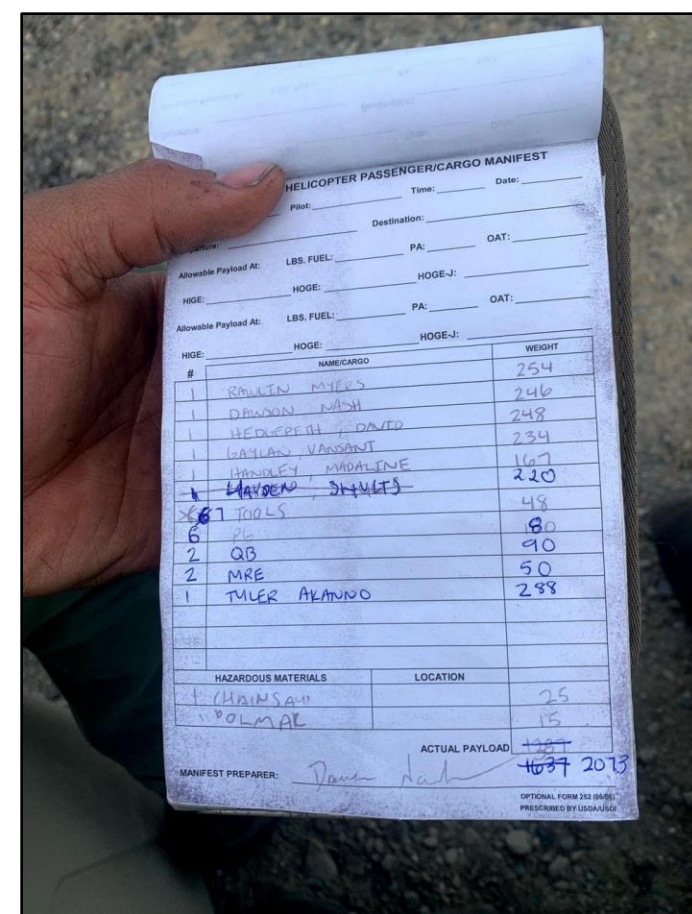 HELICOPTER PASSENGER/CARGO MANIFEST
Pilot: Time: Date:
Destination:
Allowable Payload At: LBS. FUEL: PA: OAT:
HIGE: HOGE: HOGE-J:
Allowable Payload At: LBS. FUEL: PA: OAT:
HIGE: HOGE: HOGE-J:
# NAME/CARGO WEIGHT
1 RAWLIN MYERS 254
1 DAWSON NASH 246
1 HEDGEPETH, DAVID 248
1 GAYLAN VANSANT 234
1 HANDLEY, MADALINE 167
1 HAYDEN SHULTS 220
TOOLS 48
6 PG 80
2 QB 90
2 MRE 50
1 TYLER AKANNO 288
HAZARDOUS MATERIALS LOCATION
1 CHAINSAW 25
DOLMAR 15
ACTUAL PAYLOAD
1637 2073
MANIFEST PREPARER:
OPTIONAL FORM 252
PRESCRIBED BY USDA/USDI